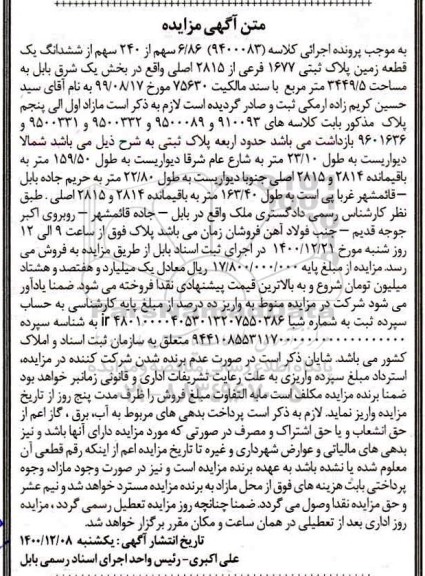 متن آگهی مزایده
به موجب پرونده اجرائی کلاسه (۹۴۰۰۰۸۳) ۶/۸۶ سهم از ۲۴۰ سهم از ششدانگ یک
قطعه زمین پلاک ثبتی ۱۶۷۷ فرعی از ۲۸۱۵ اصلی واقع در بخش یک شرق بابل به
مساحت ۳۴۴۹/۵ متر مربع با سند مالکیت ۷۵۶۳۰ مورخ ۹۹/۰۸/۱۷ به نام آقای سید
حسین کریم زاده ارمکی ثبت و صادر گردیده است لازم به ذکر است مازاد اول الی پنجم
پلاک مذکور بابت کلاسه های ۹۱۰۰۹۳ و ۹۵۰۰۰۸۹ و ۹۵۰۰۳۳۲ و ۹۵۰۰۳۳۱ و
۹۶۰۱۶۳۶ بازداشت می باشد حدود اربعه پلاک ثبتی به شرح ذیل می باشد شمالا
دیواریست به طول ۲۳/۱۰ متر به شارع عام شرقا دیواریست به طول ۱۵۹/۵۰ متر به
باقیمانده ۲۸۱۴ و ۲۸۱۵ اصلی جنوبا دیواریست به طول ۲۲/۸۰ متر به حریم جاده بابل
– قائمشهر غربا پی است به طول ۱۶۳/۴۰ متر به باقیمانده ۲۸۱۴ و ۲۸۱۵ اصلی . طبق
نظر کارشناس رسمی دادگستری ملک واقع در بابل – جاده قائمشهر – روبروی اکبر
جوجه قدیم – جنب فولاد آهن فروشان زمان می باشد پلاک فوق از ساعت ۹ الی ۱۲
روز شنبه مورخ ۱۴۰۰/۱۲/۲۱ در اجرای ثبت اسناد بابل از طریق مزایده به فروش می
رسد. مزایده از مبلغ پایه ۱۷/۸۰۰/۰۰۰/۰۰۰ ریال معادل یک میلیارد و هفتصد و هشتاد
میلیون تومان شروع و به بالاترین قیمت پیشنهادی نقدا فروخته می شود. ضمنا یادآور
می شود شرکت در مزایده منوط به واریز ده درصد از مبلغ پایه کارشناسی به حساب
سپرده ثبت به شماره شبا ir ۴۸۰۱۰۰۰۰۴۰۵۳۰۱۳۲۰۷۵۵۰۳۸۶ به شناسه سپرده
۹۴۴۱۰۸۵۵۳۱۱۷۰۰۰۰۰۰۰۰۰۰۰۰۰۰۰ متعلق به سازمان ثبت اسناد و املاک
کشور می باشد. شایان ذکر است در صورت عدم برنده شدن شرکت کننده در مزایده،
استرداد مبلغ سپرده واریزی به علت رعایت تشریفات اداری و قانونی زمانبر خواهد بود
ضمنا برنده مزایده مکلف است مابه التفاوت مبلغ فروش را ظرف مدت پنج روز از تاریخ
مزایده واریز نماید. لازم به ذکر است پرداخت بدهی های مربوط به آب، برق ، گاز اعم از
حق انشعاب و یا حق اشتراک و مصرف در صورتی که مورد مزایده دارای آنها باشد و نیز
بدهی های مالیاتی و عوارض شهرداری و غیره تا تاریخ مزایده اعم از اینکه رقم قطعی آن
معلوم شده یا نشده باشد به عهده برنده مزایده است و نیز در صورت وجود مازاد، وجوه
پرداختی بابت هزینه های فوق از محل مازاد به برنده مزایده مسترد خواهد شد و نیم عشر
و حق مزایده نقدا وصول می گردد. ضمنا چنانچه روز مزایده تعطیل رسمی گردد ، مزایده
روز اداری بعد از تعطیلی در همان ساعت و مکان مقرر برگزار خواهد شد.
تاریخ انتشار آگهی : یکشنبه ۱۴۰۰/۱۲/۰۸
علی اکبری – رئیس واحد اجرای اسناد رسمی بابل